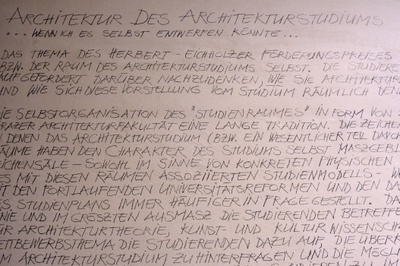 ARCHITEKTUR DES ARCHITEKTURSTUDIUMS
... WENN ICH ES SELBST ENTWERFEN KÖNNTE...
DAS THEMA DES HERBERT - EICHHOLZER FÖRDERUNGSPREISES
BZW. DER RAUM DES ARCHITEKTURSTUDIUMS SELBST. DIE STUDIERE
AUFGEFORDERT DARÜBER NACHZUDENKEN, WIE SIE ARCHITEKTUR
UND WIE SICH DIESE VORSTELLUNG VOM STUDIUM RÄUMLICH DEN
DIE SELBSTORGANISATION DES "STUDIENRAUMES" IN FORM VON
RAZER ARCHITEKTURFAKULTÄT EINE LANGE TRADITION. DIE ZEICHEN
DENEN DAS ARCHITEKTURSTUDIUM (BZW. EIN WESENTLICHER TEIL DAVON
RÄUME HABEN DEN CHARAKTER DES STUDIUMS SELBST MASZGEBL
ICHENSÄLE - SOWOHL IM SINNE VON KONKRETEN PHYSISCHEN
ES MIT DIESEN RÄUMEN ASSOZIIERTEN STUDIENMODELLS - W
T DEN FORTLAUFENDEN UNIVERSITÄTSREFORMEN UND DEN DA
S STUDIENPLANS IMMER HÄUFIGER IN FRAGE GESTELLT. DA
NIE UND IM GRÖSZTEN AUSMASZ DIE STUDIERENDEN BETREFFE
ÜR ARCHITEKTURTHEORIE, KUNST- UND KULTURWISSENSCH
ETTBEWERBSTHEMA DIE STUDIERENDEN DAZU AUF, DIE ÜBERK
M ARCHITEKTURSTUDIUM ZU HINTERFRAGEN UND DIE MÖGLI